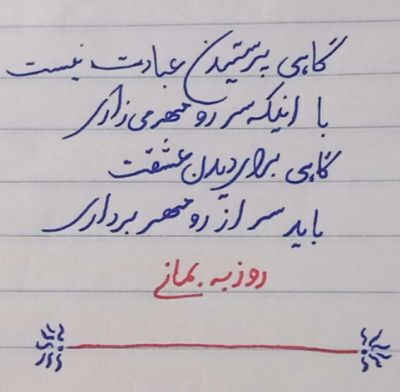 گاهی پرستیدن عبادت نیست
با اینکه سر رو مهر می زاری
گاهی برای دیدن عشقت
باید سر از رو مهر برداری
روزبه بمانی